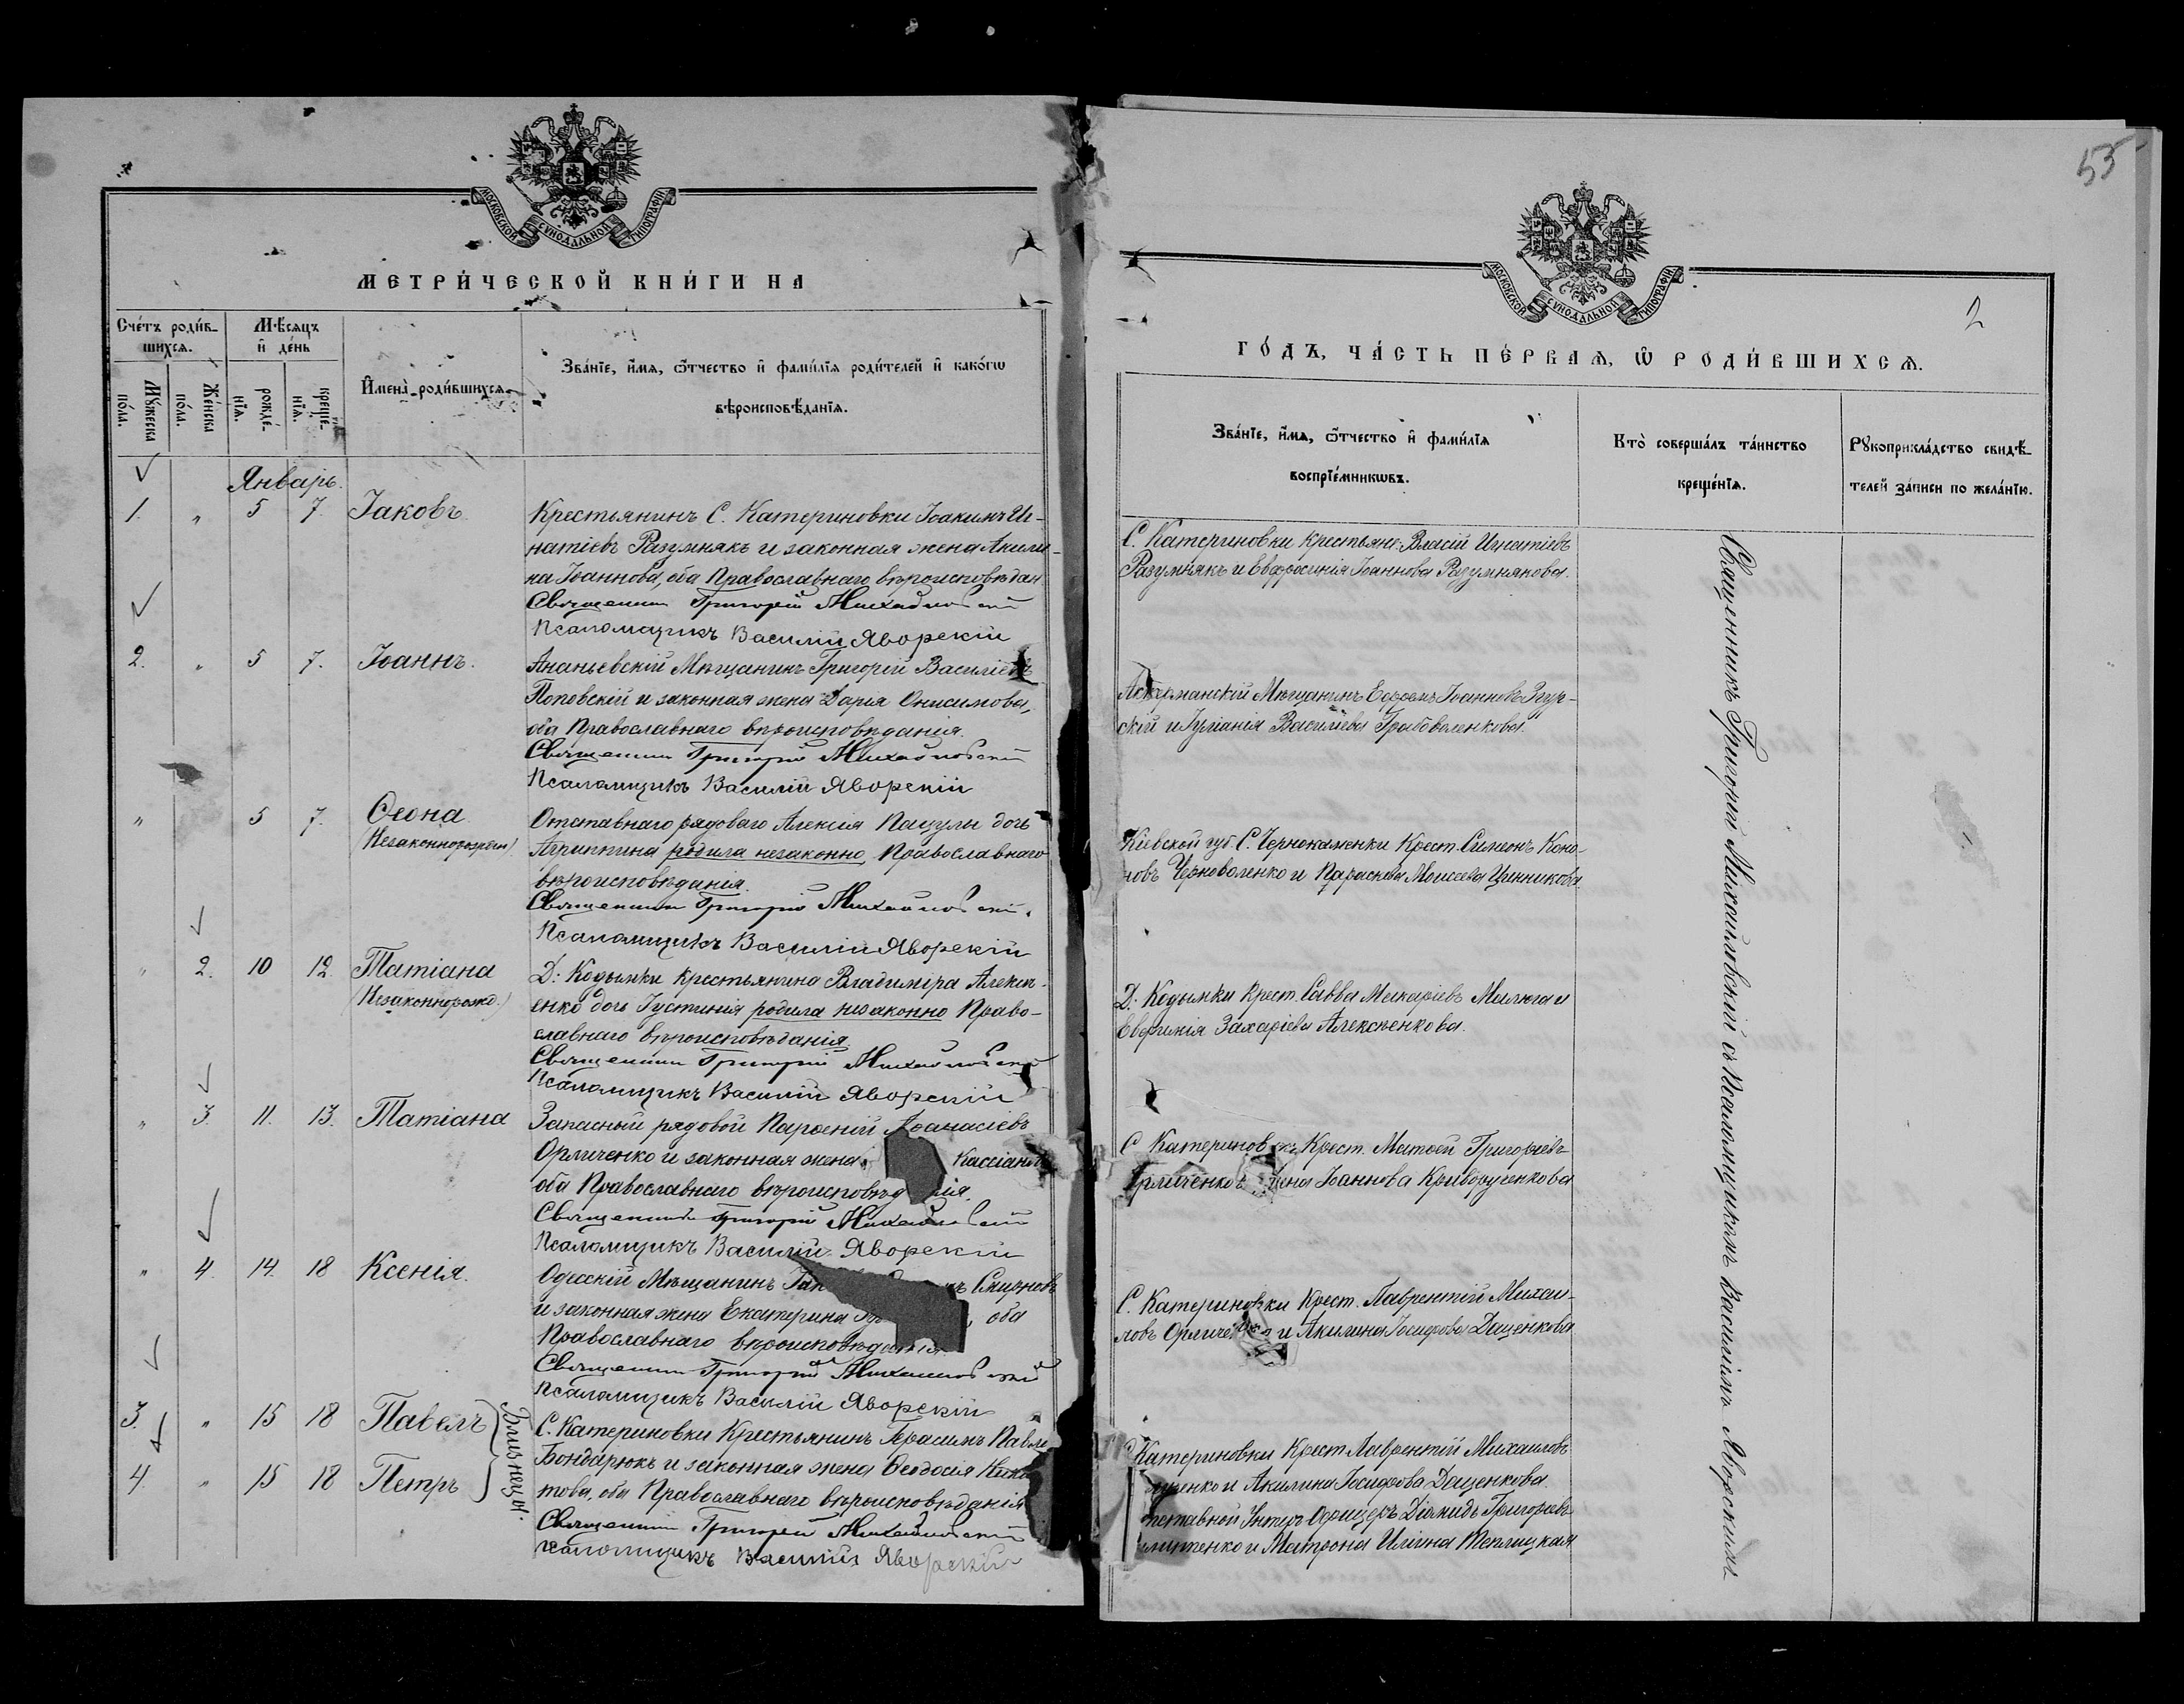 МОСКОВСКОЙ СѴНОДАЛЬНОЙ ТИПОГРАФІИ
МЕТРИ́ЧЕСКОЙ КНИ́ГИ НА
Сче́тъ роди́в-
шихсѧ.
Мѣ́сѧцъ
и҆ де́нь
И҆мена̀ роди́вшихсѧ.
Зва́нїе, и҆́мѧ, ѿтчество и҆ фами́лїѧ роди́телей и҆ како́гѡ
вѣроисповѣ́данїѧ.
Мꙋ́жеска
по́ла.
Же́нска
по́ла.
рожде́-
нїѧ.
креще́-
нїѧ.
Январь.
1. „ 5 7. Іаковъ.
Крестьянинъ С. Катериновки Іоакимъ Иг-
натіевъ Разумнякъ и законная жена Акили-
на Іоаннова, оба Православнаго вѣроисповѣдан
Священник Григорій Михайловскій
Псаломщикъ Василій Яворскій
2. „ 5 7. Іоаннъ.
Ананьевскій Мѣщанинъ Григорій Василіевъ
Поповскій и законная жена Дарія Онисимова,
оба Православнаго вѣроисповѣданія.
Священник Григорій Михайловскій
Псаломщикъ Василій Яворскій
„ 5 7. Ѳеона
(Незаконнорожден)
Отставнаго рядоваго Алексія Пацулы дочь
Агриппина родила незаконно, Православнаго
вѣроисповѣданія.
Священник Григорій Михайловскій
Псаломщикъ Василій Яворскій
„ 2. 10 12. Татіана
(Незаконнорожд.)
Д: Кодымки крестьянина Владиміра Алексѣ-
енко дочь Іустинія родила незаконно Право-
славнаго вѣроисповѣданія
Священник Григорій Михайловскій
Псаломщикъ Василій Яворскій
„ 3. 11. 13. Татіана
Запасный рядовой Парѳеній Аѳанасіевъ
Орличенко и законная жена Кассіанова
оба Православнаго вѣроисповѣд нія.
Священник Григорій Михайловскій
Псаломщикъ Василій Яворскій
„ 4. 14. 18 Ксенія.
Одесскій Мѣщанинъ Смирновъ
и законная жена Екатерина оба
Православнаго вѣроисповѣданія.
Священник Григорій Михайловскій
Псаломщикъ Василій Яворскій
3. „ 15 18 Павелъ
4. „ 15 18 Петръ
Близнецы.
С. Катериновки Крестьянинъ Герасимъ Павло
Бондарюкъ и законная жена Ѳеодосія Ники
това, оба Православнаго вѣроисповѣданія
Священник Григорій Михайловскій
Псаломщикъ Василій Яворскій
53
МОСКОВСКОЙ СѴНОДАЛЬНОЙ ТИПОГРАФІИ
2
ГО́ДЪ, ЧА́СТЬ ПЕ́РВАѦ, Ѡ҆ РОДИ́ВШИХСѦ.
Зва́нїе, и҆́мѧ, ѿтчество и҆ фами́лїѧ
воспрїе́мникѡвъ.
Кто̀ соверша́лъ та́инство
креще́нїѧ.
Рꙋкоприкла́дство свидѣ́-
телей за́писи по жела́нїю.
С. Катериновки крестьяне: Власій Игнатіевъ
Разумнякъ и Евфросинія Іоаннова Разумнякова.
Аккерманскій Мѣщанинъ Ефремъ Іоанновъ Згур-
скій и Іуліанія Василіева Грабоваленкова.
Кіевской губ. С. Чернокаменки Крест. Симеонъ Коно-
новъ Черноволенко и Параскева Моисеева Цинникова
Д. Кодымки Крест. Савва Макаріевъ Малюга и
Евфимія Захаріева Алексѣенкова.
С Катериновки Крест. Матѳей Григоріевъ
Орличенко Іоаннова Криворученкова
С. Катериновки Крест. Лаврентій Михаи-
ловъ Орличенко и Акилина Іосифова Даценкова
С Катериновки Крест Лаврентій Михаиловъ
ченко и Акилина Іосифова Даценкова.
Отставной Унтеръ Офицеръ Діамидъ Григорьевъ
и Матрона Иліина Теплицкая
Священникъ Григорій Михайловскій съ псаломщикомъ Василіемъ Яворскимъ